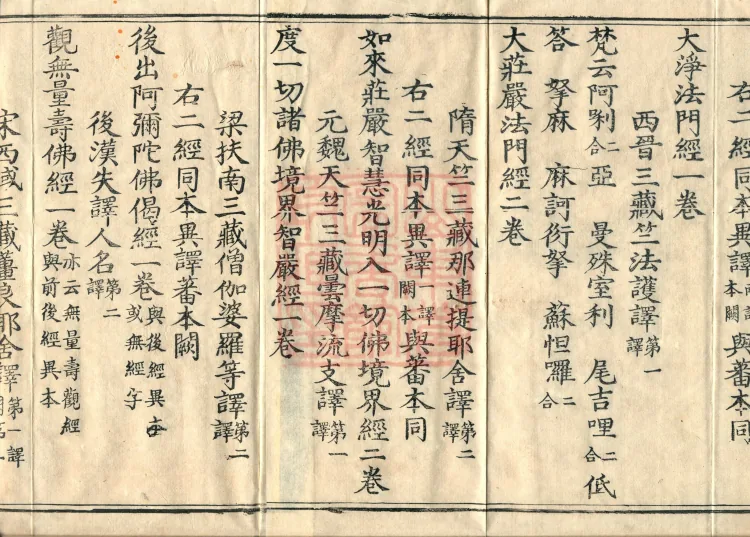 右二經同本異譯兩譯本闕與蕃本同
大淨法門經一卷
西晉三藏竺法護譯第一譯
梵云阿剌二合亞 曼殊室利 尾吉哩二合低
答 拏麻 麻訶衍拏 蘇怛囉二合
大莊嚴法門經二卷
隋天竺三藏那連提耶舍譯第二譯
右二經同本異譯一譯闕本與蕃本同
如來莊嚴智慧光明入一切佛境界經二卷
元魏天竺三藏曇摩流支譯第一譯
度一切諸佛境界智嚴經一卷
梁扶南三藏僧伽婆羅等譯第二譯
右二經同本異譯蕃本闕
後出阿彌陀佛偈經一卷與後經異本或無經字
後漢失譯人名第二譯
觀無量壽佛經一卷亦云無量壽觀經與前後經異本
宋西域三藏畺良耶舍譯第一譯